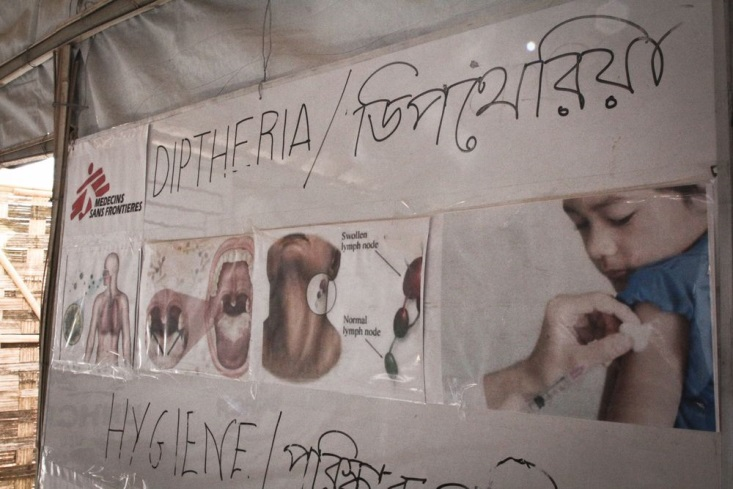 DIPTHERIA / ডিপথেরিয়া
MEDECINS
SANS FRONTIERES
Swollen
lymph node
Normal
lymph node
HYGIENE /